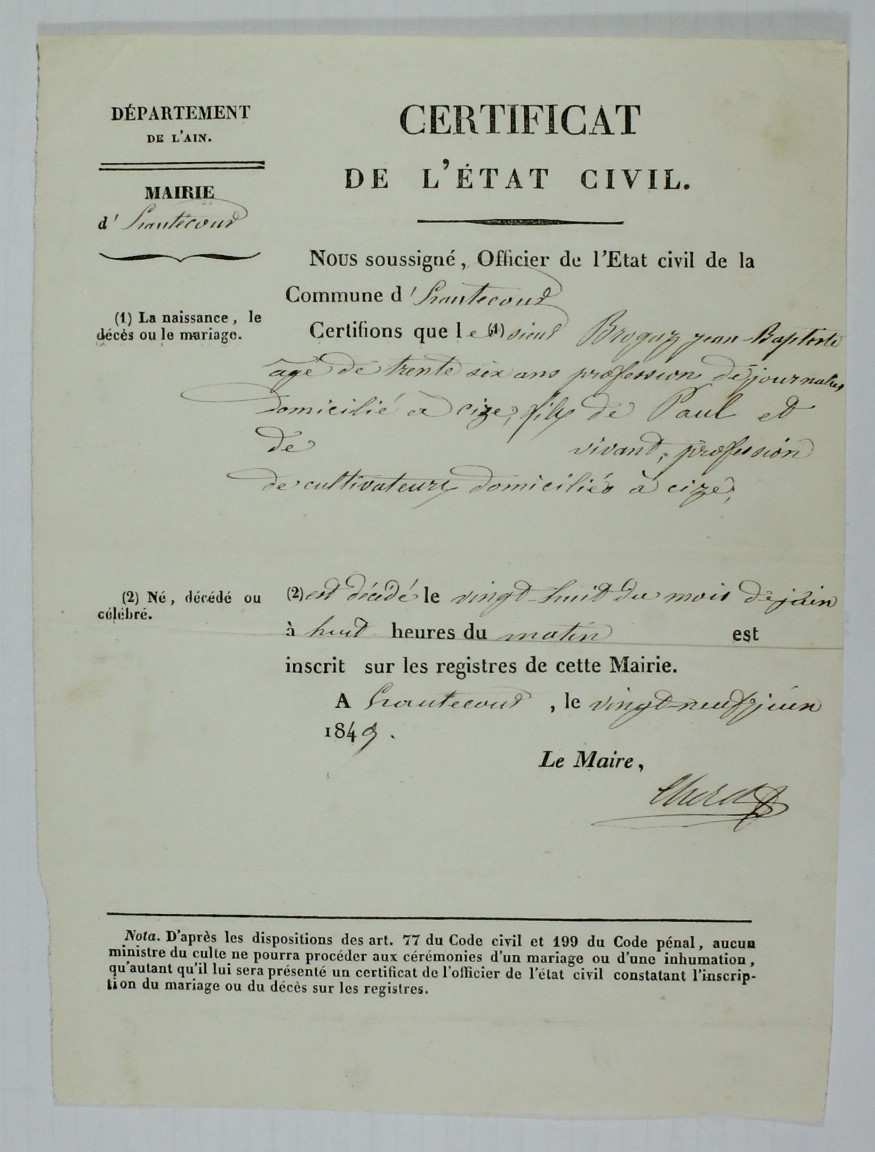 DÉPARTEMENT
DE L'AIN.
MAIRIE
d' hautecour
CERTIFICAT
DE L'ÉTAT CIVIL.
Nous soussigné, Officier de l'Etat civil de la
Commune d' hautecour
(1) La naissance, le
décès ou le mariage.
Certifions que le (1) sieur Brogaz jean-Baptiste
âgé de trente six ans profession de journalier
domicilié à cize, fils de Paul et
de vivant, profession
de cultivateurs domiciliés à cize,
(2) Né, décédé ou
célébré.
(2) est décédé le vingt-huit du mois de juin
à huit heures du matin est
inscrit sur les registres de cette Mairie.
A hautecour, le vingt-neuf juin
1849.
Le Maire,
Nota. D'après les dispositions des art. 77 du Code civil et 199 du Code pénal, aucun
ministre du culte ne pourra procéder aux cérémonies d'un mariage ou d'une inhumation,
qu'autant qu'il lui sera présenté un certificat de l'officier de l'état civil constatant l'inscrip-
tion du mariage ou du décès sur les registres.